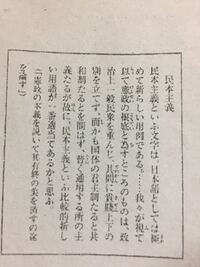 民本主義
民本主義といふ文字は、日本語としては極
めて新らしい用例である。……我々が視て
以て憲政の根底と為すところのものは、政
治上一般民衆を重んじ、其間に貴賤上下の
別を立てず、而かも国体の君主制たると共
和制たるとを問はず、普く通用する所の主
義たるが故に、民本主義といふ比較的新し
い用語が一番適当であるかと思ふ。
(「憲政の本義を説いて其有終の美を済すの途
を論ず」)